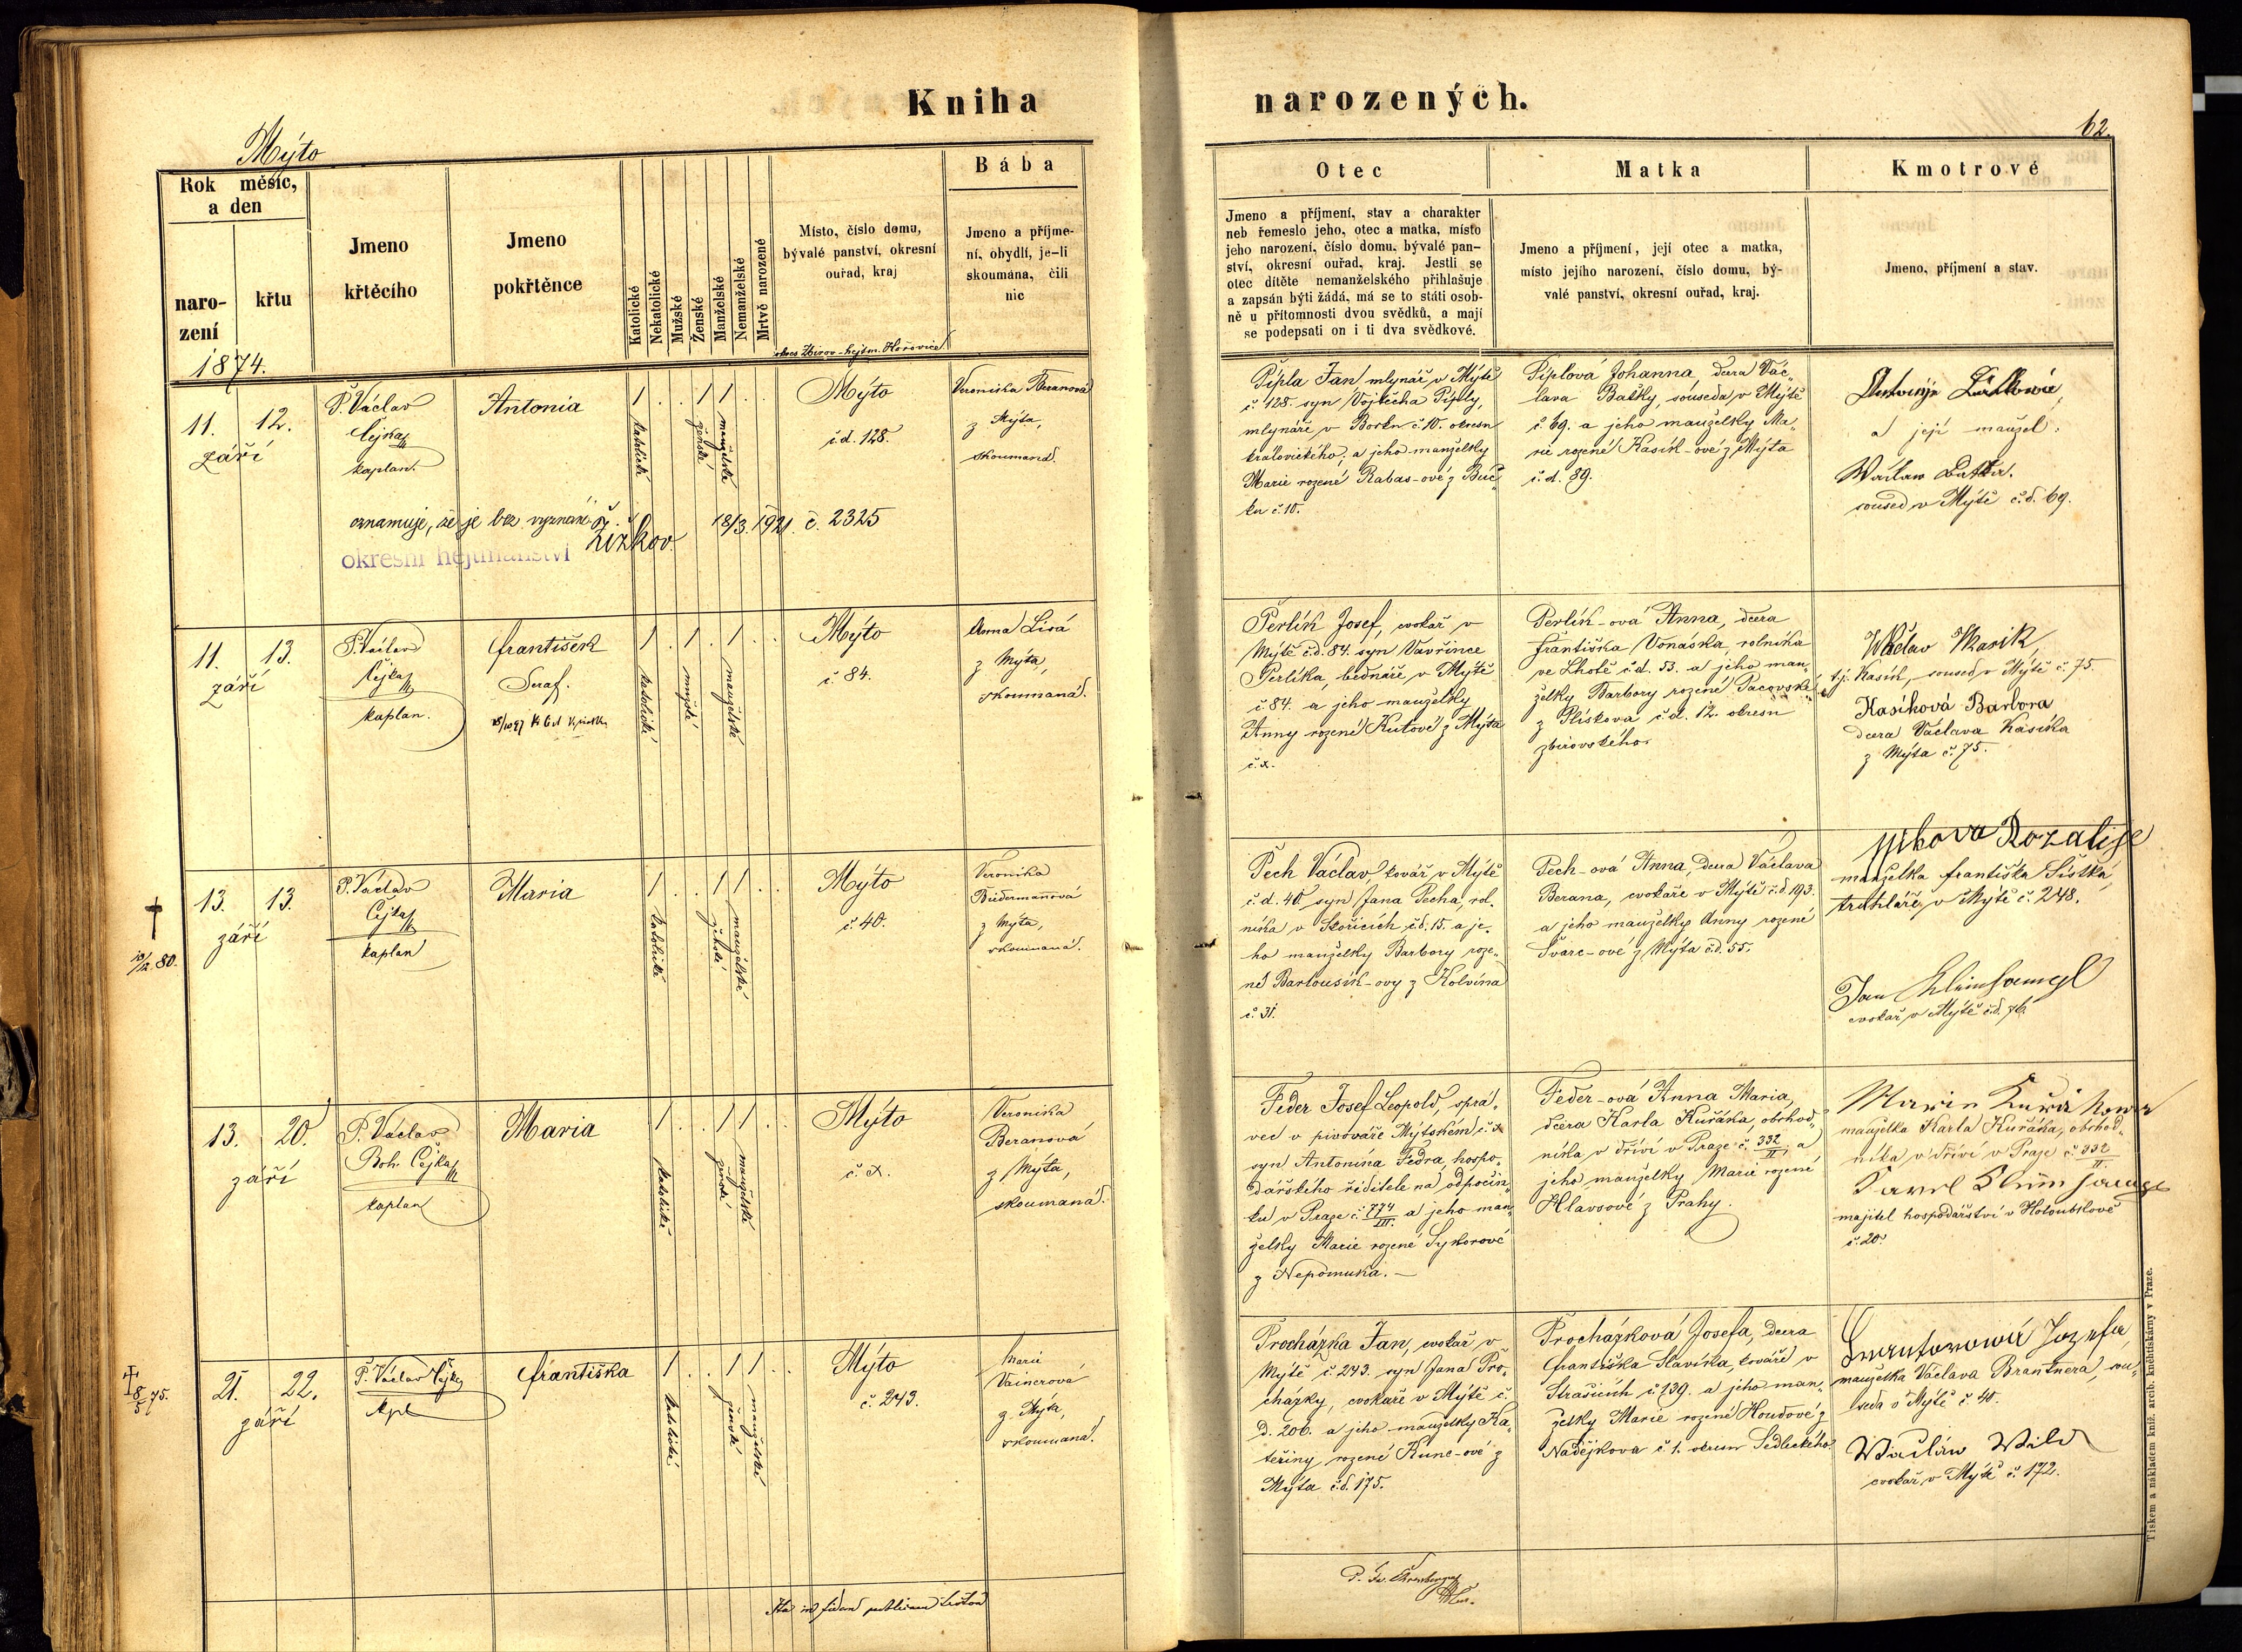 Kniha
narozených.
62.
Mýto
Rok měsíc,
a den
naro-
zení
křtu
Jmeno
křtěcího
Jmeno
pokřtěnce
Katolické
Nekatolické
Mužské
Ženské
Manželské
Nemanželské
Mrtvě narozené
Místo, číslo domu,
bývalé panství, okresní
ouřad, kraj
okres Zbirov - hejtm. Hořovice
Bába
Jmeno a příjme-
ní, obydlí, je-li
skoumána, čili
nic
Otec
Jmeno a příjmení, stav a charakter
neb řemeslo jeho, otec a matka, místo
jeho narození, číslo domu, bývalé pan-
ství, okresní ouřad, kraj. Jestli se
otec dítěte nemanželského přihlašuje
a zapsán býti žádá, má se to státi osob-
ně u přítomnosti dvou svědků, a mají
se podepsati on i ti dva svědkové.
Matka
Jmeno a příjmení, její otec a matka,
místo jejího narození, číslo domu, bý-
valé panství, okresní ouřad, kraj.
Kmotrové
Jmeno, příjmení a stav.
1874.
11. 12.
září
P. Václav
Čejka
kaplan.
Antonia
1 . . 1 1
katolické
ženské
manželské
Mýto
č.d. 128.
Veronika Beranová
z Mýta,
skoumaná.
oznamuje, že je bez vyznání
okresní hejtmanství Žižkov
18/3. 1921. č. 2325
Pípla Jan mlynář v Mýtě
č. 128. syn Vojtěcha Píply,
mlynáře v Borku č. 10. okresu
královického, a jeho manželky
Marie rozené Rabas-ové z Buč-
ku č. 10.
Píplová Johanna, dcera Vác-
lava Baťky, souseda v Mýtě
č. 69. a jeho manželky Ma-
rie rozené Kasík-ové z Mýta
č.d. 89.
a její manžel.
soused v Mýtě č.d. 69.
11. 13.
září
P. Václav
Čejka
kaplan.
František
Seraf.
1 . 1 . 1 . .
katolické
mužské
manželské
Mýto
č. 84.
Anna Lisá
z Mýta,
skoumaná.
Perlík Josef, cvokař v
Mýtě č.d. 84. syn Vavřince
Perlíka, bednáře v Mýtě
č. 84. a jeho manželky
Anny rozené Kutové z Mýta
Perlík-ová Anna, dcera
Františka Vonáska, rolníka
ve Lhotě č.d. 53. a jeho man-
želky Barbory rozené Pacovské
z Plískova č.d. 12. okresu
zbirovského.
Václav Kasik,
t.j. Kasík, soused v Mýtě č. 75.
Kasíková Barbora
dcera Václava Kasíka
z Mýta č. 75.
13. 13.
září
10/12. 80.
P. Václav
Čejka
kaplan
Maria
1 . . 1 1 . .
katolické
ženské
manželské
Mýto
č. 40.
Veronika
Biedermannová
z Mýta,
skoumaná.
Pech Václav kovář v Mýtě
č.d. 40 syn Jana Pecha, rol-
níka v Skořicích č.d. 15. a je-
ho manželky Barbory roze-
né Bartousík-ovy z Kolvína
č. 31.
Pech-ová Anna, dcera Václava
Berana, cvokaře v Mýtě č.d. 193.
a jeho manželky Anny rozené
Švarc-ové z Mýta č.d. 55.
Rozalije
manželka Františka Šístka,
truhláře v Mýtě č. 248.
Jan Kleinhampl
cvokař v Mýtě č.d. 76.
13. 20.
září
P. Václav
Boh. Čejka
kaplan
Maria
1 . . 1 1 . .
katolické
ženské
manželské
Mýto
Veronika
Beranová
z Mýta,
skoumaná.
Feder Josef Leopold, sprá-
vec v pivováře Mýtském
syn Antonína Fedra, hospo-
dářského řiditele na odpočin-
ku v Praze č. 774/III. a jeho man-
želky Marie rozené Sykorové
z Nepomuka. —
Feder-ová Anna Maria,
dcera Karla Kuřáka, obchod-
níka v dříví v Praze č. 332/II. a
jeho manželky Marie rozené
Hlavsové z Prahy.
Marie Kuřáková
manželka Karla Kuřáka, obchod-
níka v dříví v Praze č. 332/II.
Karel Kleinhampl
majitel hospodářství v Holoubkově
č. 20.
21. 22.
září
8/5 75.
P. Václav Čejka
kpl
Františka
1 . . 1 1 . .
katolické
ženské
manželské
Mýto
č. 243.
Marie
Vainerová
z Mýta,
skoumaná.
Procházka Jan, cvokař v
Mýtě č. 243. syn Jana Pro-
cházky, cvokaře v Mýtě č.
d. 206. a jeho manželky Ka-
teřiny rozené Kunc-ové z
Mýta č.d. 175.
Procházková Josefa, dcera
Františka Slavíka, kováře v
Strašicích č. 139. a jeho man-
želky Marie rozené Houdové z
Nadějkova č. 1. okresu Sedleckého.
Jozefa
manželka Václava Brantnera, sou-
seda v Mýtě č. 40.
Waclaw Wild
cvokař v Mýtě č. 172.
Ita in fidem publicam testor
Tiskem a nákladem kníž. arcib. knihtiskárny v Praze.